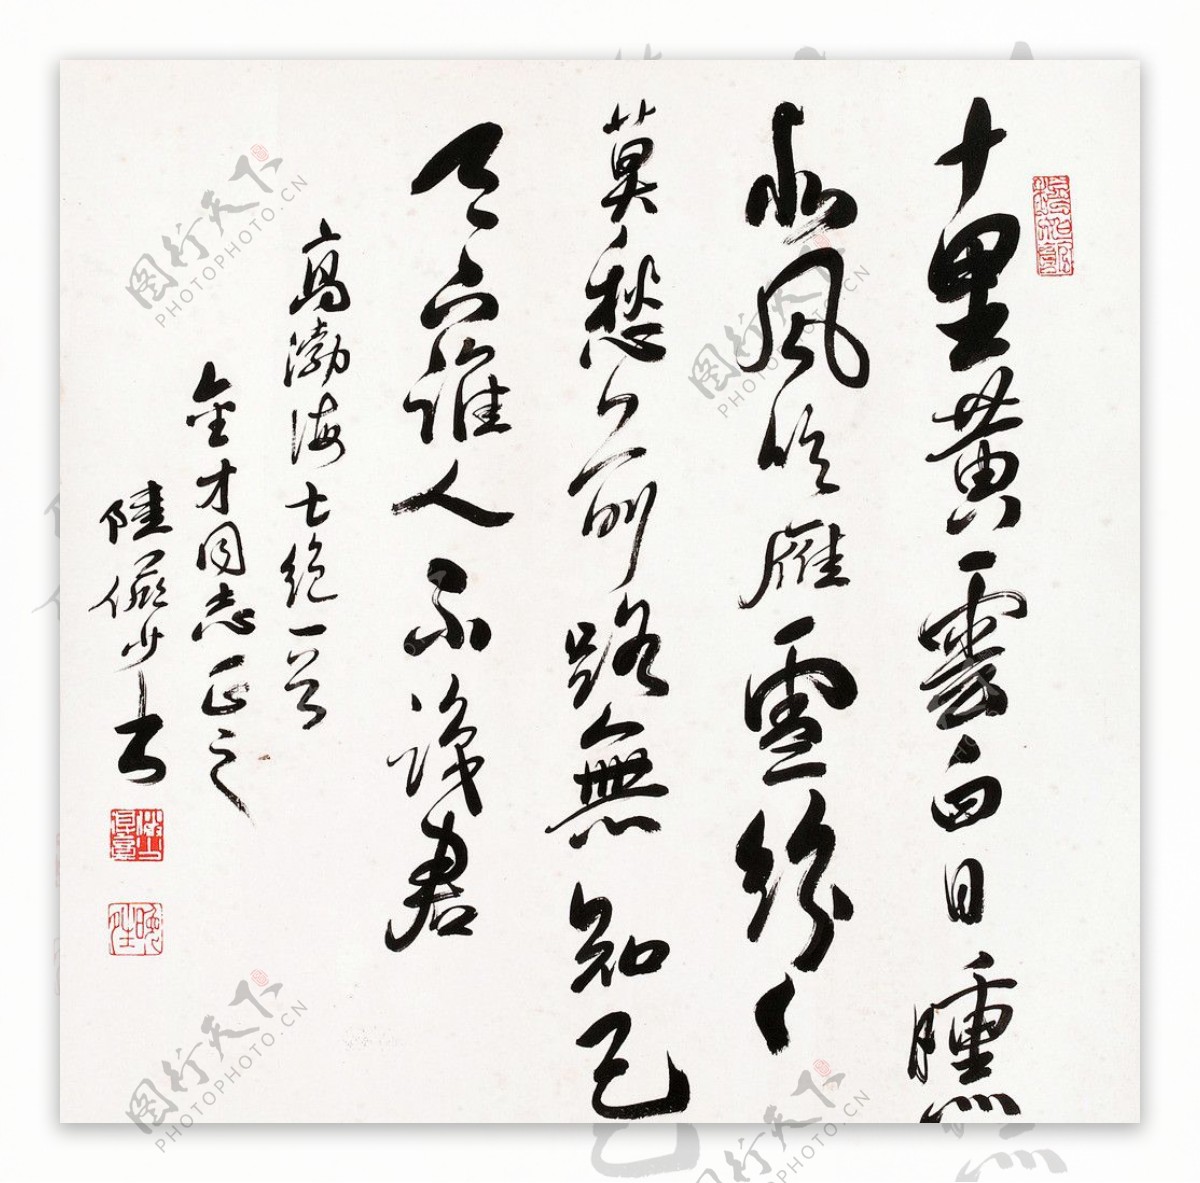 十里黄雲白日曛
北風吹雁雪紛々
莫愁前路無知己
天下誰人不識君
高渤海七絕一首
金才同志正之
陸儼少書
图行天下
PHOTOPHOTO.CN
图行天下
PHOTOPHOTO.CN
图行天下
PHOTOPHOTO.CN
图行天下
PHOTOPHOTO.CN